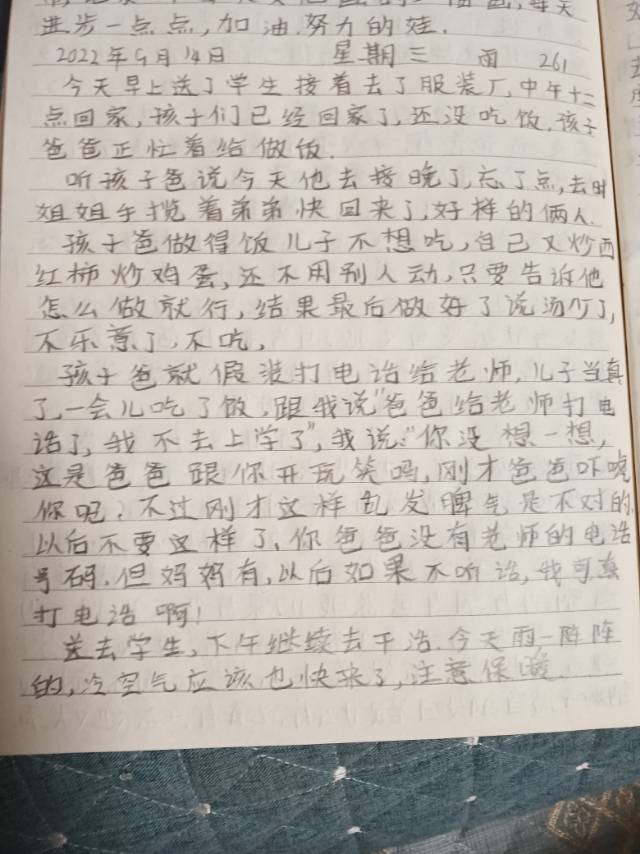 进步一点点,加油.努力的娃.
2022年9月14日 星期三 雨 261
今天早上送了学生接着去了服装厂,中午十二
点回家,孩子们已经回家了,还没吃饭.孩子
爸爸正忙着给做饭.
听孩子爸说今天他去接晚了,忘了点,去时
姐姐手揽着弟弟快回来了,好样的俩人.
孩子爸做得饭儿子不想吃,自己又炒西
红柿炒鸡蛋,还不用别人动,只要告诉他
怎么做就行,结果最后做好了说汤少了,
不乐意了,不吃,
孩子爸就假装打电话给老师,儿子当真
了,一会儿吃了饭,跟我说"爸爸给老师打电
话了,我不去上学了",我说:"你没想一想,
这是爸爸跟你开玩笑吗,刚才爸爸吓唬
你呢?不过刚才这样乱发脾气是不对的,
以后不要这样了,你爸爸没有老师的电话
号码.但妈妈有,以后如果不听话,我可真
打电话啊!
送去学生,下午继续去干活.今天雨一阵阵
的,冷空气应该也快来了,注意保暖.